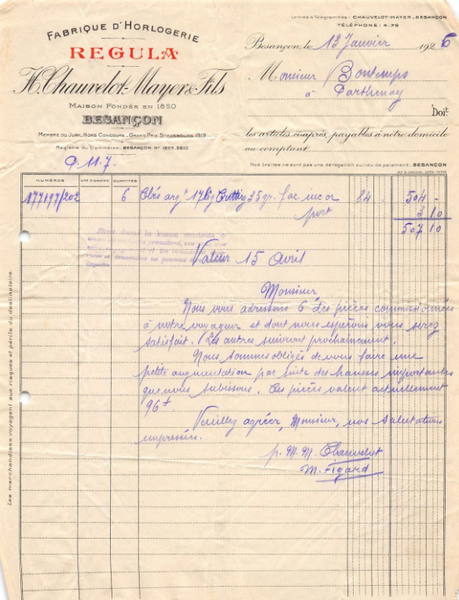 Lettres & Télégrammes : CHAUVELOT-MAYER, BESANÇON
TÉLÉPHONE : 4.79
FABRIQUE D'HORLOGERIE
REGULA
H. Chauvelot-Mayer & Fils
MAISON FONDÉE EN 1850
BESANÇON
MEMBRE DU JURY, HORS CONCOURS - GRAND PRIX STRASBOURG 1919
Registre du Commerce : BESANÇON
Besançon, le 13 Janvier 1926
Monsieur Bontemps
à Parthenay
Doit
les articles ci-après, payables à notre domicile
au comptant.
Nos traites ne sont pas une dérogation au lieu de paiement, BESANÇON
9.11.7.
NUMÉROS QUANTITÉS
177197/202 6 17 35 gr. 84 504 -
port 3 10
507 10
Valeur 15 Avril
Monsieur
Nous vous adressons 6 des pièces commissionnées
à notre voyageur et dont nous espérons vous serez
satisfait. Les autres suivront prochainement.
Nous sommes obligés de vous faire une
petite augmentation par suite des hausses importantes
que nous subissons. Ces pièces valent actuellement
96 f
Veuillez agréer, Monsieur, nos salutations
empressées.
p. M. M. Chauvelot
M. Figard
Les marchandises voyagent aux risques et périls du destinataire.